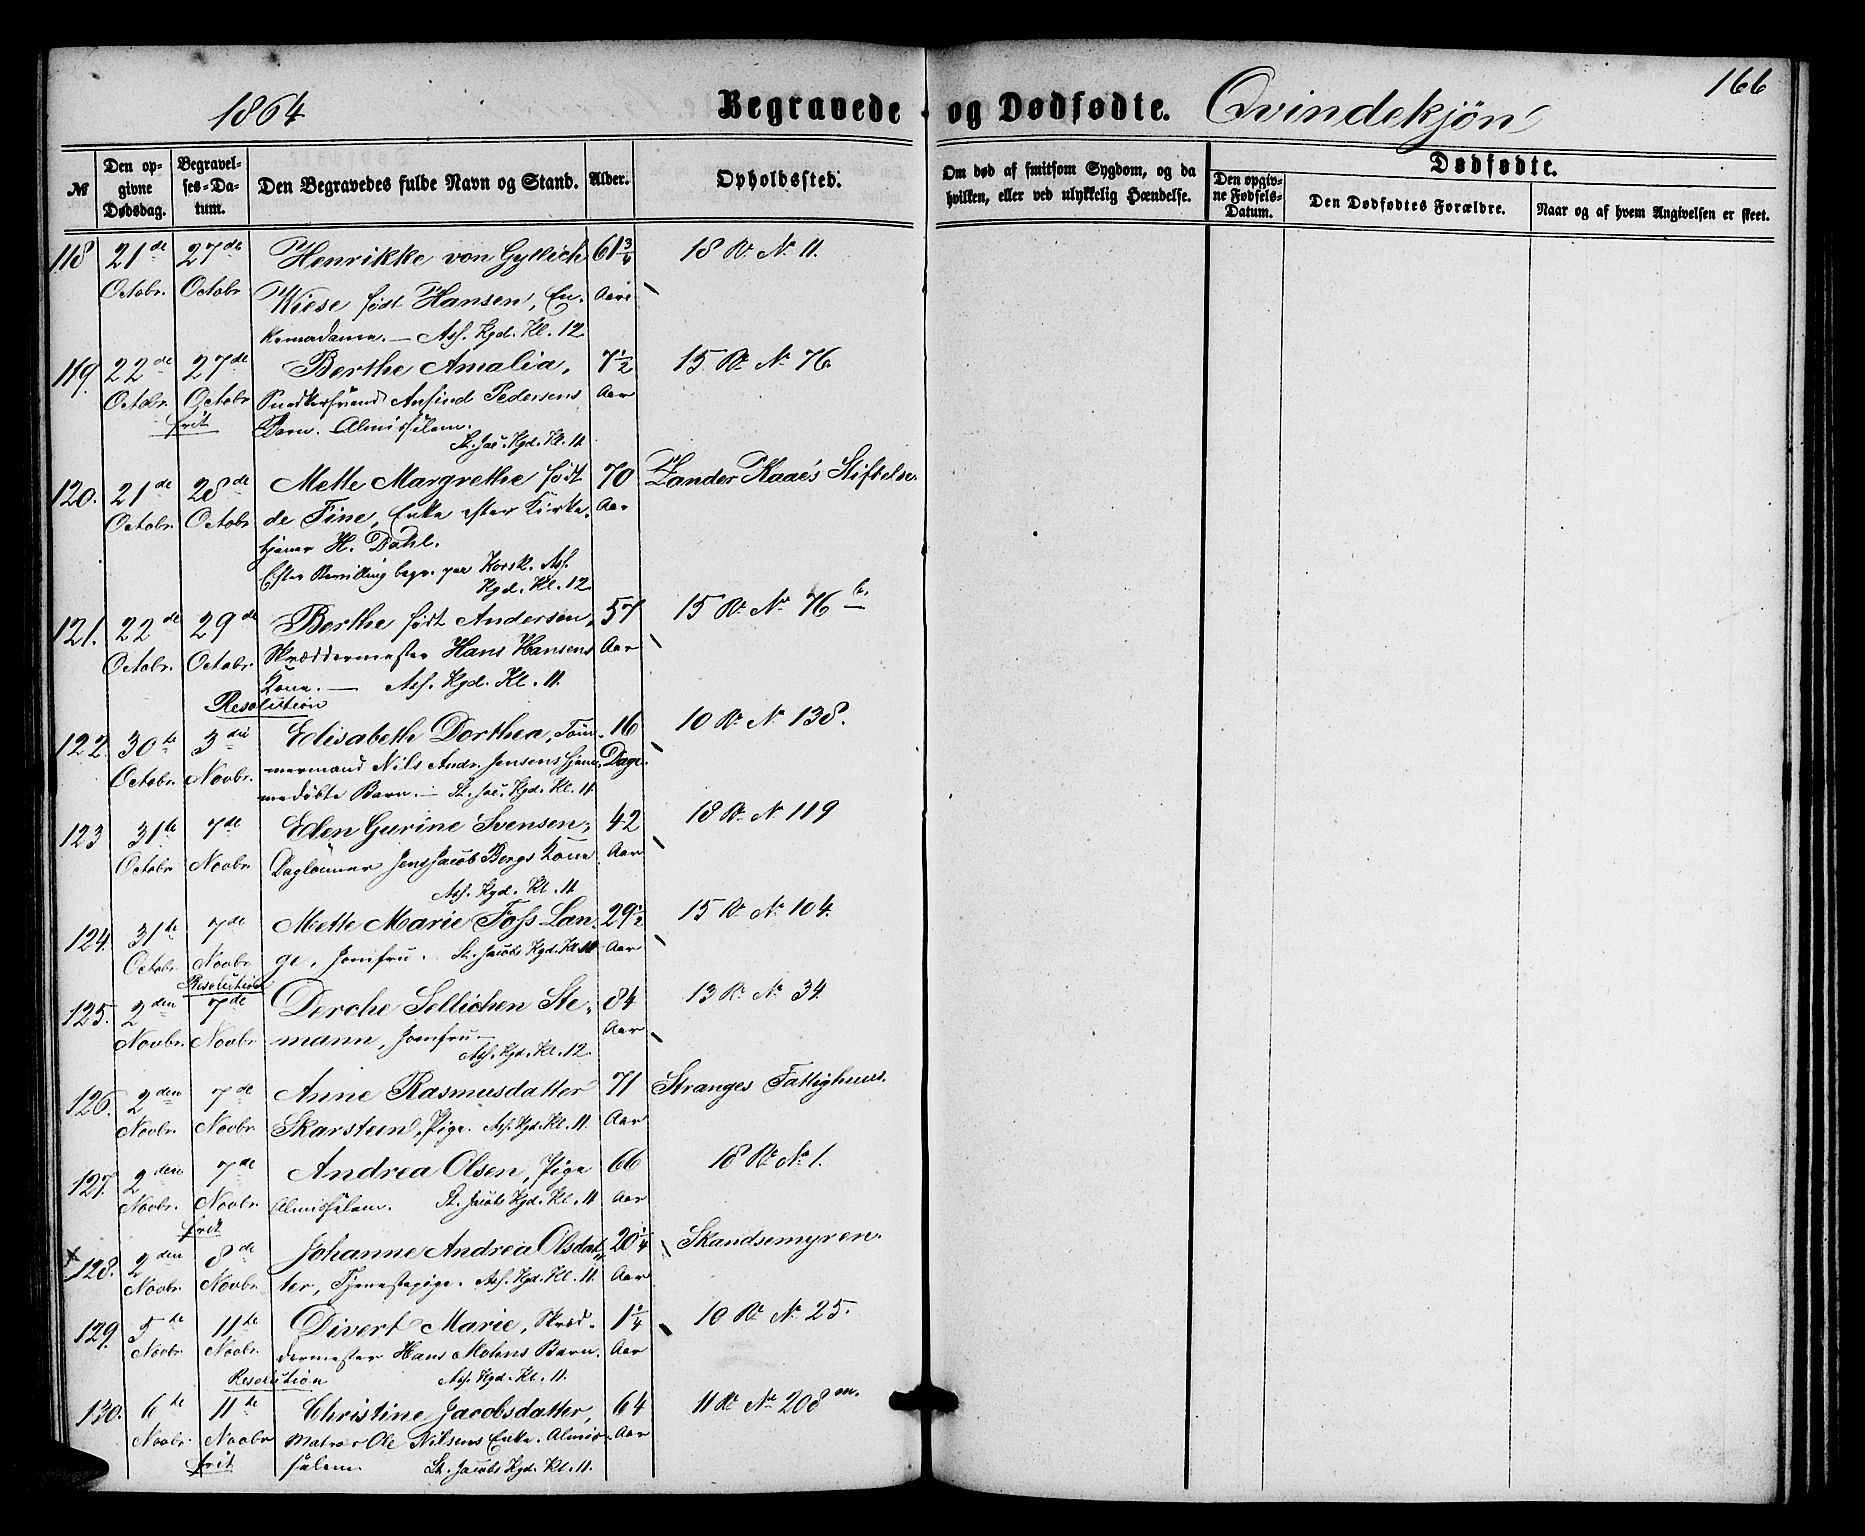 1864
Begravede og Dødfødte. Qvindekjøn
166
№
Den opgivne Dødsdag.
Begravelses-Datum.
Den Begravedes fulde Navn og Stand.
Alder.
Opholdssted.
Om død af smitsom Sygdom, og da hvilken, eller ved ulykkelig Hændelse.
Dødfødte.
Den opgivne Fødsels-Datum.
Den Dødfødtes Forældre.
Naar og af hvem Angivelsen er skeet.
118 21de 27de Henrikke von Gyllich 61 3/4 18 R. No 11.
Octobr. Octobr Wiese født Hansen, En- Aar
kemadame. — Ass. Kgd. Kl. 12
119. 22de 27de Berthe Amalia, 7 1/2 15 R. No 76.
Octobr. Octobr Snedkersvend Anfind Pedersens Aar
frit Barn. Almisselem.
St. Jac. Kgd. Kl. 11
120. 21de 28de Mette Margrethe født 70 Zander Kaaes Stiftelse.
Octobr. Octobr de Fine, Enke efter Kirke- Aar
tjener H. Dahl.
Efter Bevilling begr. paa Korsk. Ass.
Kgd. Kl. 12
121. 22de 29de Berthe født Andersen, 57 15 R. No 76 b.
Octobr. Octobr. Skræddermester Hans Hansens Aar
Kone. — Ass. Kgd. Kl. 11.
Resolution
122. 30te 3die Elisabeth Dorthea, Tøm- 16 10 R. No 138.
Octobr. Novbr. mermand Nils Andr. Jensens hjem- Dage.
medøbte Barn. — St. Jac. Kgd. Kl. 11
123 31te 7de Elen Gurine Svensen, 42 18 R. No 119
Octobr. Novbr. Daglønner Jens Jacob Bergs Kone Aar
Ass. Kgd. Kl. 11
124. 31te 7de Mette Marie Foss Lan- 29 1/2 15 R. No 104.
Octobr. Novbr ge, Jomfru. St. Jacobs Kgd. Kl. 11 Aar
Resolution
125. 2den 7de Derche Sellichen Ste- 84 13 R. No 34.
Novbr. Novbr mann, Jomfru — Aar
Ass. Kgd. Kl. 12.
126. 2den 7de Anne Rasmusdatter 71 Stranges Fattighuus.
Novbr. Novbr Skarsteen, Pige. Ass. Kgd. Kl. 11. Aar
127. 2den 7de Andrea Olsen, Pige 66 18 R. No 1.
Novbr. Novbr. Almisselem. St. Jacobs Kgd. Kl. 11 Aar
frit
x 128. 2den 8de Johanne Andrea Olsdat- 20 1/4 Skandsemyren.
Novbr. Novbr. ter, Tjenestepige. Ass. Kgd. Kl. 11. Aar
129. 5te 11te Divert Marie, Skræd- 1 1/4 10 R. No 25.
Novbr. Novbr. dermester Hans Mohns Barn. Aar
Resolution Ass. Kgd. Kl. 11.
130. 6te 11te Christine Jacobsdatter, 64 11 R. No 208 m.
Novbr. Novbr Matros Ole Nilsens Enke. Almis- Aar
frit selem St. Jacobs Kgd. Kl. 11.